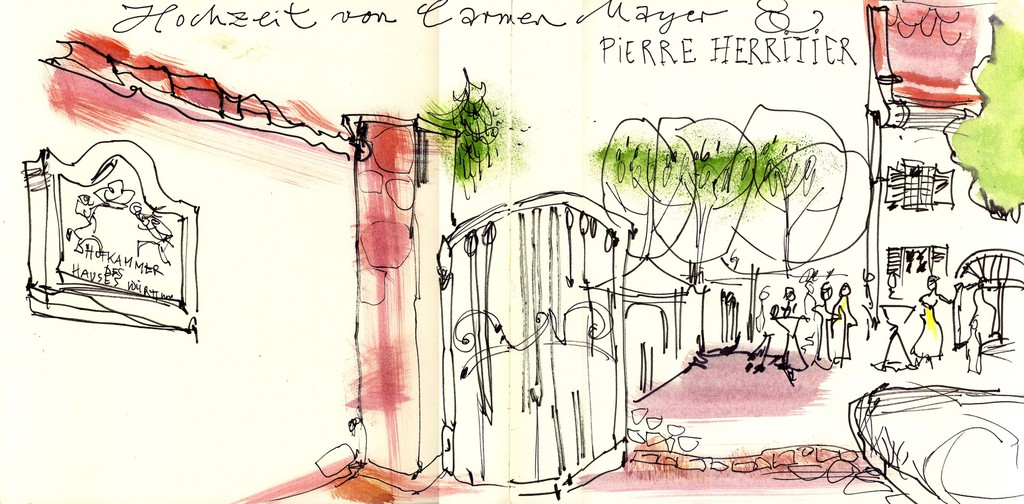 Hochzeit von Carmen Mayer &
PIERRE HERRITIER
HOFKAMMER
DES
HAUSES